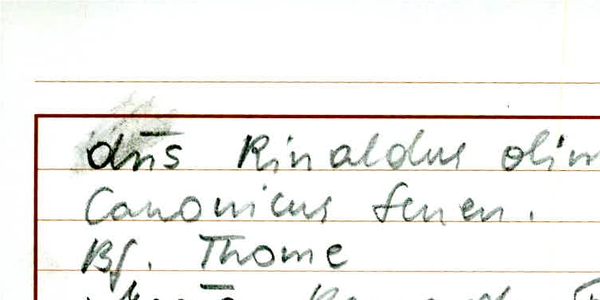 dn̄s Rinaldus olim
Canonicus senen.
Bſ. Thome